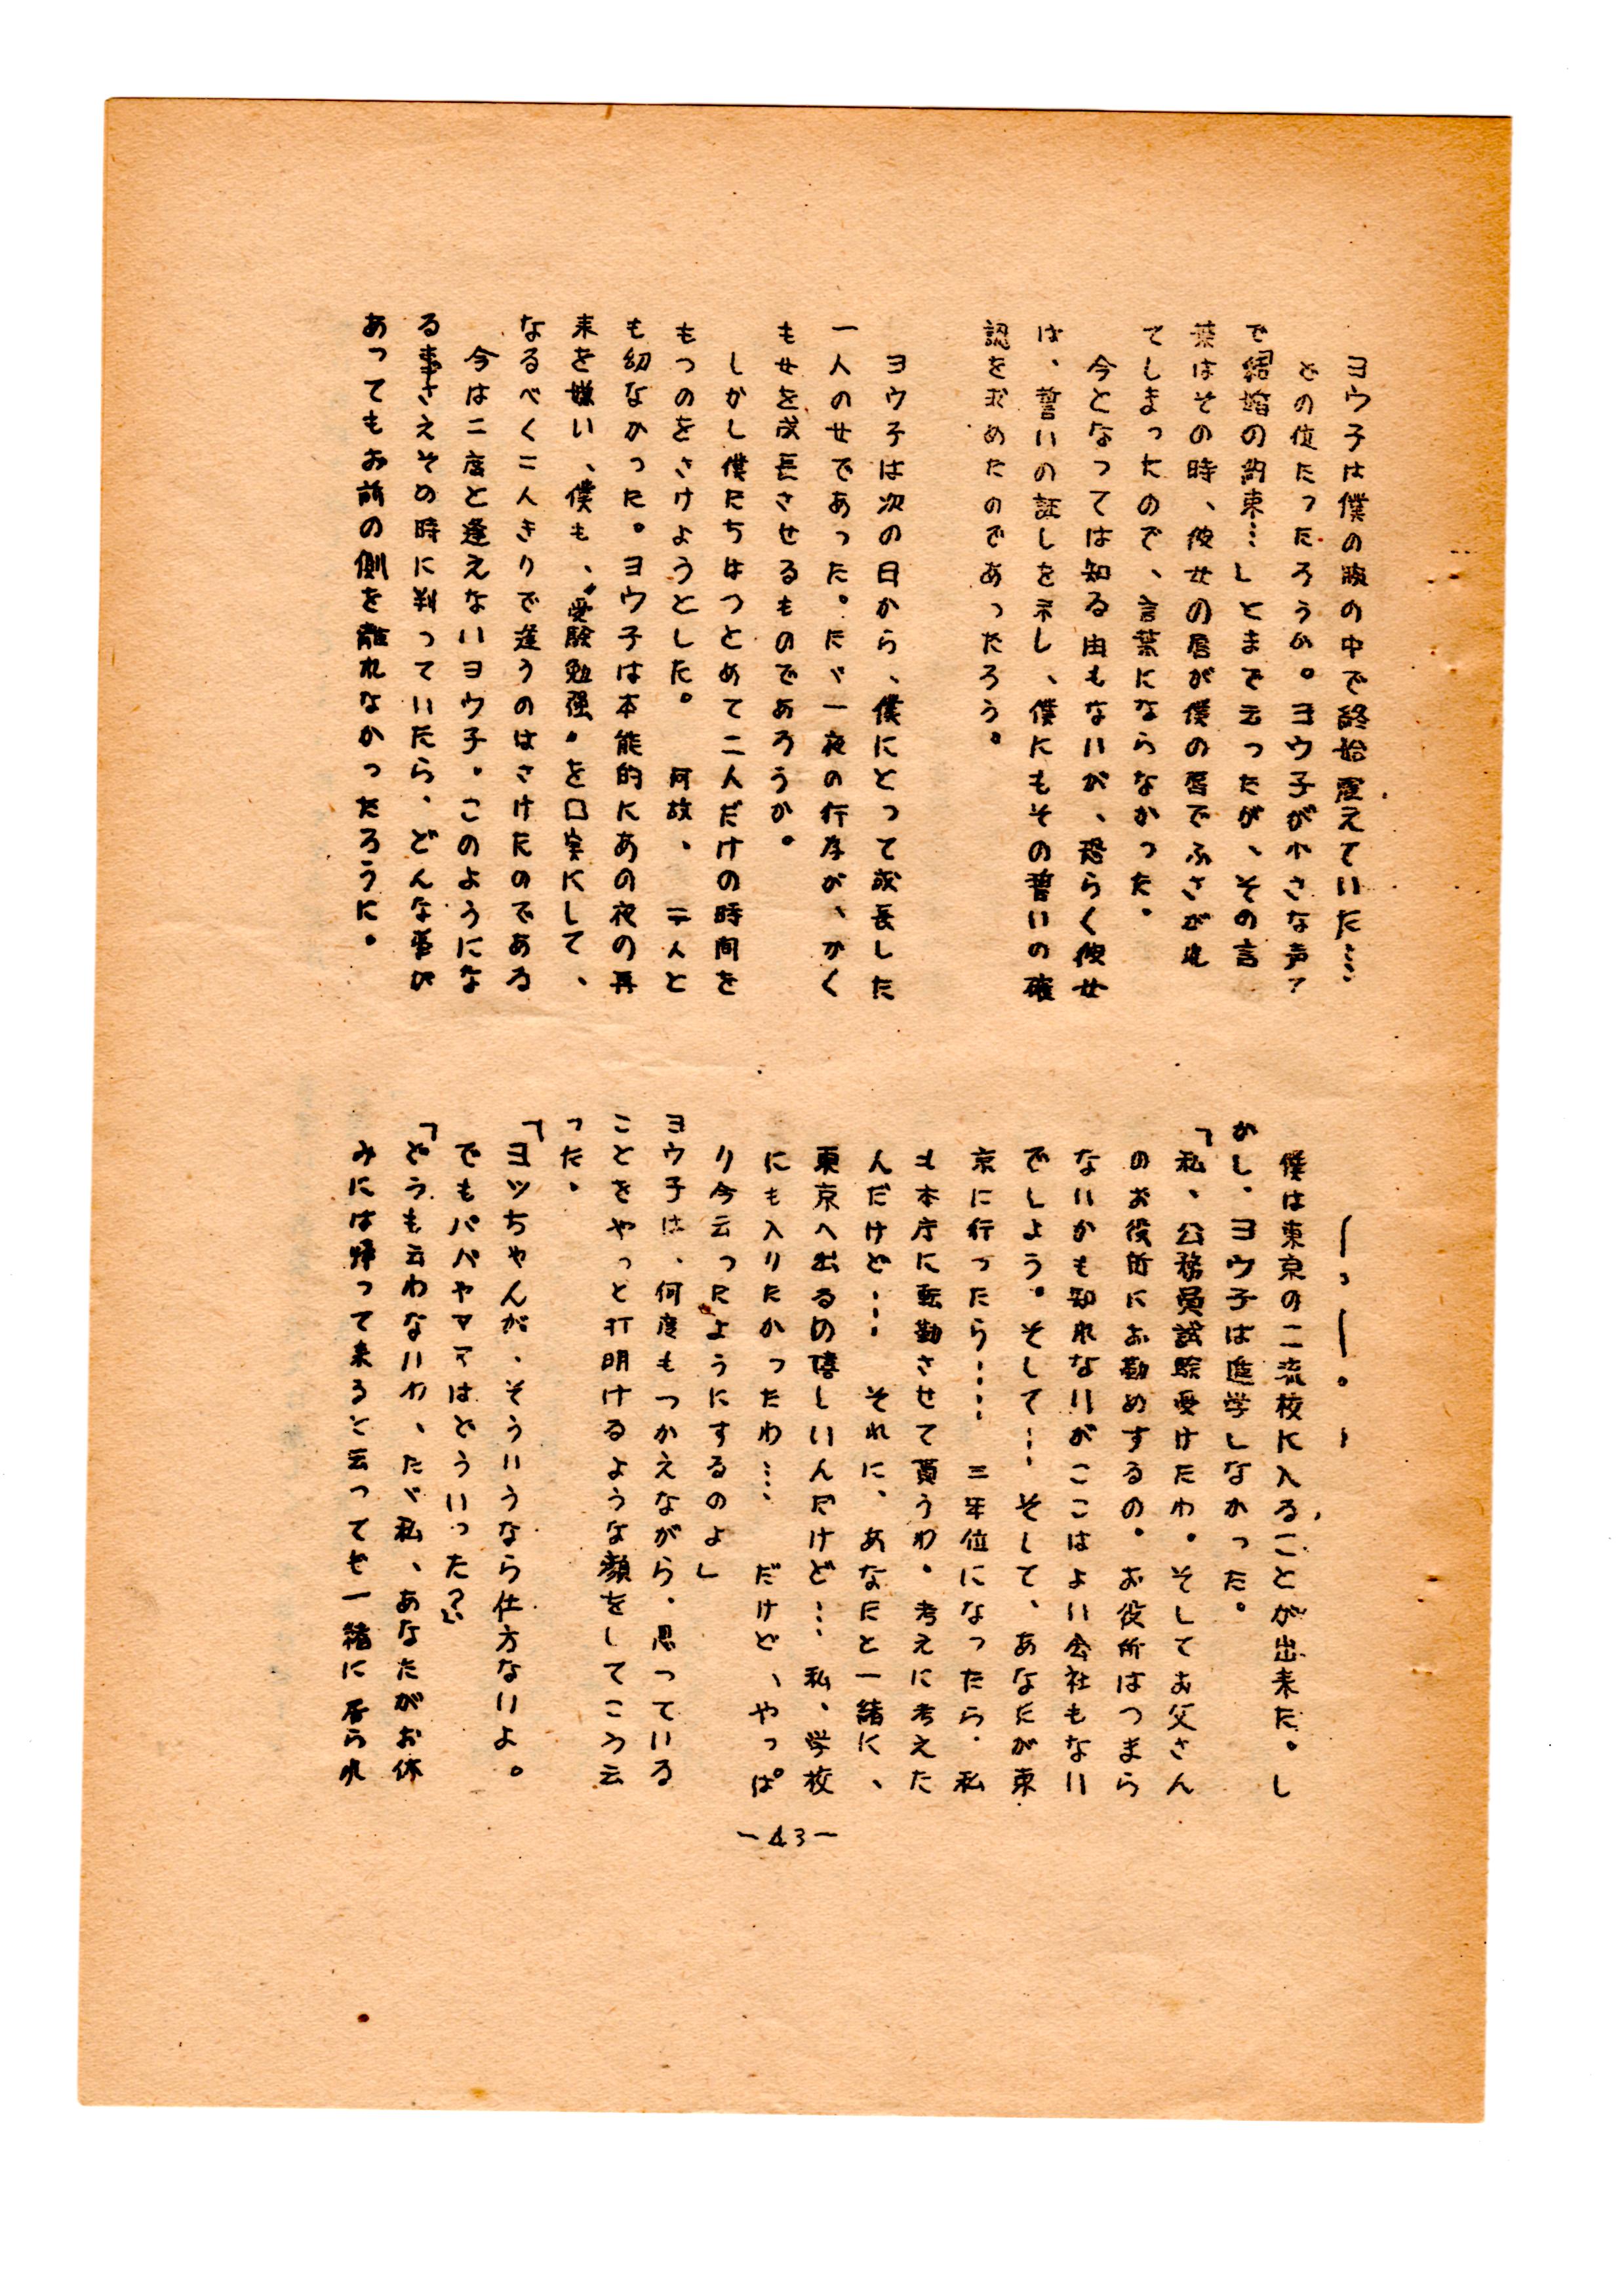 ヨウ子は僕の腕の中で終始震えていた…
どの位たったろうか。ヨウ子が小さな声
で「結婚の約束…」とまで云ったが、その言
葉はその時、彼女の唇が僕の唇でふさがれ
てしまったので、言葉にならなかった。
今となっては知る由もないが、恐らく彼女
は、誓いの証しを示し、僕にもその誓いの確
認を求めたのであったろう。
ヨウ子は次の日から、僕にとって成長した
一人の女であった。たゞ一夜の行為が、かく
も女を成長させるものであろうか。
しかし僕たちはつとめて二人だけの時間を
もつのをさけようとした。何故、二人と
も幼なかった。ヨウ子は本能的にあの夜の再
来を嫌い、僕も、〝受験勉強〟を口実にして、
なるべく二人きりで逢うのはさけたのである
今は二度と逢えないヨウ子。このようにな
る事さえその時に判っていたら、どんな事が
あってもお前の側を離れなかったろうに。
僕は東京の二流校に入ることが出来た。し
かし、ヨウ子は進学しなかった。
「私、公務員試験受けたわ。そしてお父さん
のお役所にお勤めするの。お役所はつまら
ないかも知れないがここはよい会社もない
でしよう。そして…そして、あなたが東
京に行ったら……三年位になったら、私
も本庁に転勤させて貰うわ。考えに考えた
んだけど…それに、あなたと一緒に、
東京へ出るの嬉しいんだけど…私、学校
にも入りたかったわ…だけど、やっぱ
り今云ったようにするのよ」
ヨウ子は、何度もつかえながら、思っている
ことをやっと打明けるような顔をしてこう云
った。
「ヨッちゃんが、そういうなら仕方ないよ。
でもパパやママはどういった？」
「どうも云わないわ、たゞ私、あなたがお休
みには帰って来ると云っても一緒に居られ
－43－